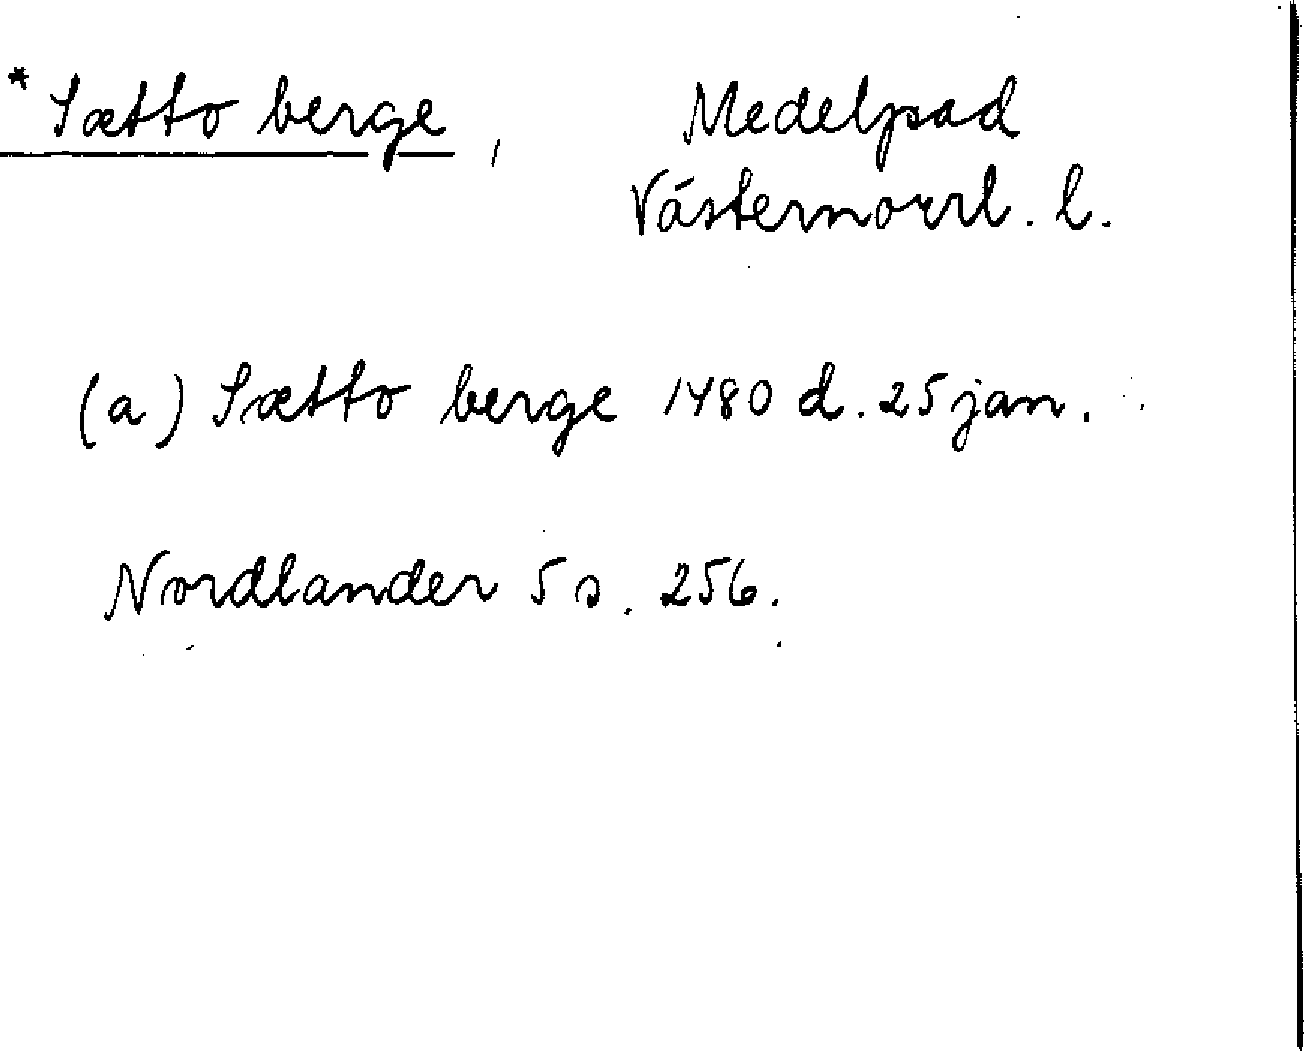 * Sætto berge, Medelpad
Västernorrl. l.
(a) Sætto berge 1480 d. 25 jan.
Nordlander 5 s. 256.